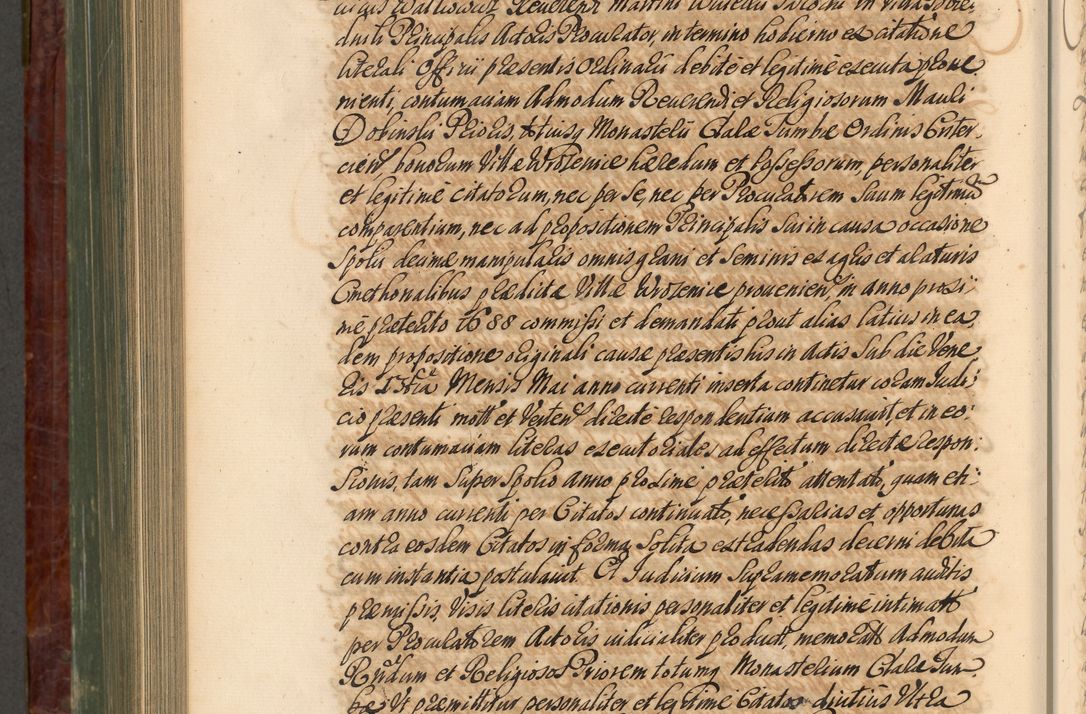 Reverendi Martini
duili Principalis Actoris Procurator, in termino hodierno ex citatione
literali Officii praesentis Ordinarii debite et legitime executa prove
nienti, contumaciam Admodum Reverendi et Religiosorum Mauli
Dobinski Prioris, totiusq Monastelii Clalæ Tumbæ Ordinis Cister
cien bonorum Villæ Wrozenice hæredum et possessorum personaliter
et legitime citatorum, nec per se, nec per Procuratorem suum legitimū
comparentium, nec ad propositionem Principalis sui in causa occasione
spolii decimæ manipulalis omnis grani et seminis ex agris et araturis
Cmethonalibus prædictæ Villæ Wrozenice provenien in anno proxi
me præterito 1688 commissi et demandati prout alias latius in ea
dem propositione originali causæ præsentis his in Actis sub die Vene
ris 13tia Mensis Mai anno currenti inserta continetur coram Judi
cio præsenti mott et verten directe respondentium accusavit, et in eo
rum contumaciam literas executoriales ad effectum directæ respon
sionis, tam super spolio anno proxime præterito attentato, quam eti
am anno currenti per Citatos continuato, necessarias et opportunas
contra eosdem Citatos in forma solita extradendas decerni debita
cum instantia postulavit. Et Judicium supramemoratum auditis
præmissis, visis literis citationis personaliter et legitime intimatt
per Procuratorem Actoris iudicialiter product, memoratt Admodum
Rndum et Religiosos Priorem totumq Monasterium Claræ Tum
bæ Ut præmittitur personaliter et legitime Citatos diutius Ultra